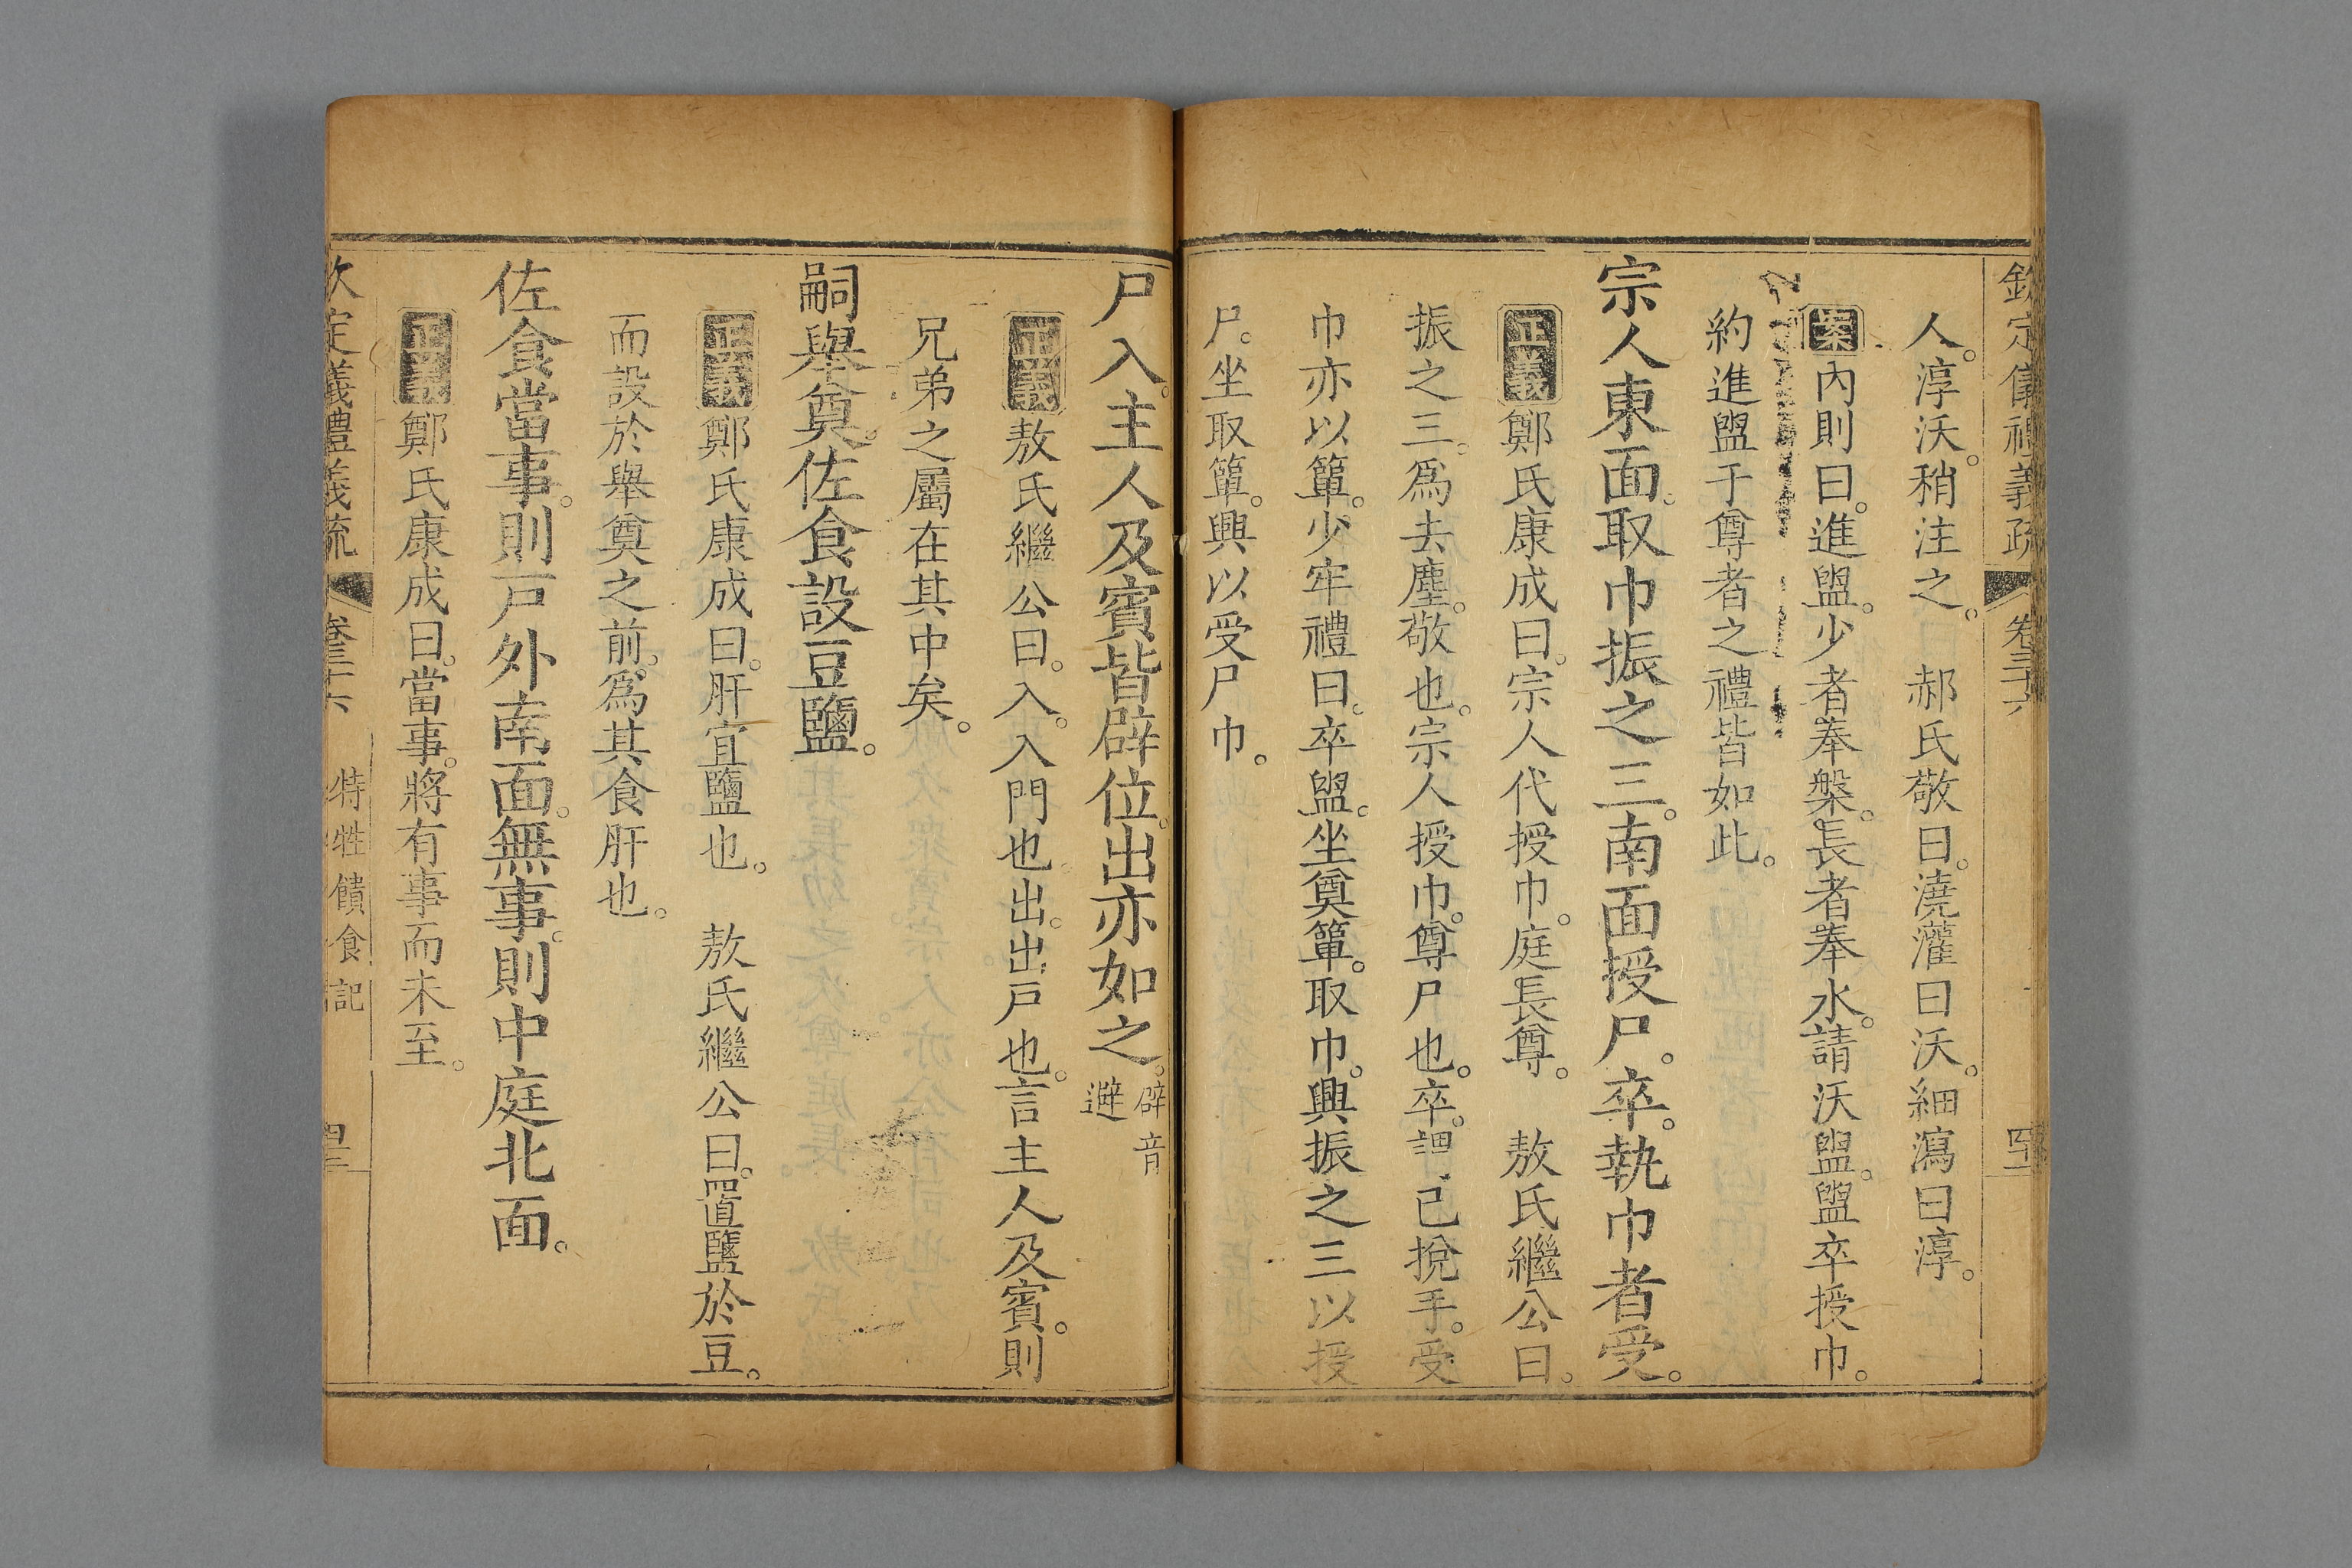 欽定儀禮義疏 卷三十六
人。淳沃。稍注之。 郝氏敬曰。澆灌曰沃。細瀉曰淳。
案 內則曰。進盥。少者奉槃。長者奉水。請沃盥。盥卒授巾。
約進盥于尊者之禮皆如此。
宗人東面。取巾振之三。南面授尸。卒。執巾者受。
正義 鄭氏康成曰。宗人代授巾。庭長尊。 敖氏繼公曰。
振之三。爲去塵。敬也。宗人授巾。尊尸也。卒。謂已挩手。受
巾亦以簞。少牢禮曰。卒盥。坐奠簞。取巾。興振之三以授
尸。坐取簞。興以受尸巾。
尸入。主人及賓皆辟位。出亦如之。辟音
避
正義 敖氏繼公曰。入。入門也。出。出戸也。言主人及賓。則
兄弟之屬在其中矣。
嗣舉奠。佐食設豆鹽。
正義 鄭氏康成曰。肝宜鹽也。 敖氏繼公曰。置鹽於豆。
而設於舉奠之前。爲其食肝也。
佐食當事。則戸外南面。無事。則中庭北面。
正義 鄭氏康成曰。當事。將有事而未至。
欽定義禮義疏 卷三十六 特牲饋食記